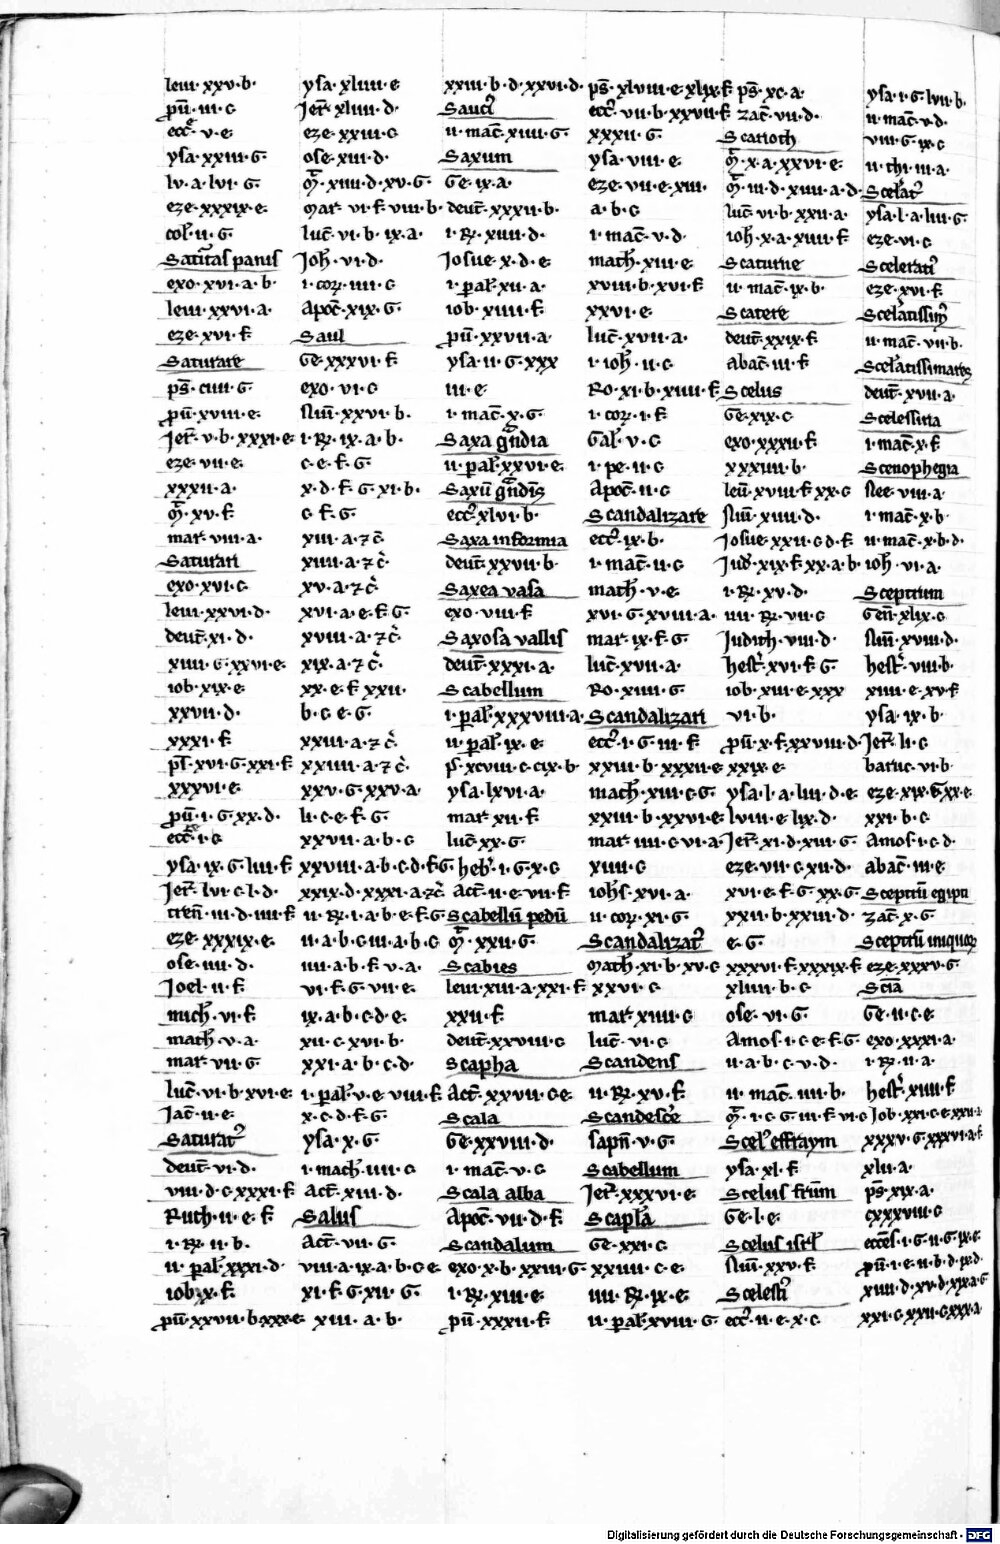 leui · xxv · b ·
pu̅ · iii · c
ecc̅e · v · e ·
ysa · xxiii · G ·
lv · a · lvi · G ·
eze · xxxix · e ·
col̅ · ii · G ·
Satu͛tas panis
exo · xvi · a · b ·
leui · xxvi · a ·
eze · xvi · f
Saturare
ps̅ · ciiii · G
pu̅ · xviii · e ·
Jer̅ · v · b · xxxi · e
eze · vii · e ·
xxxii · a ·
q̅ · xv · f
mar · viii · a ·
Saturari
exo · xvi · c
leui · xxvi · d ·
deut̅ · xi · d ·
xiiii · G · xxvi · e ·
iob · xix · e ·
xxvii · d ·
xxxi · f
ps̅ · xvi · G · xxi · f
xxxvi · e ·
pu̅ · i · G · xx · d ·
ecc̅e · i · c
ysa · ix · G · liii · f
Jer̅ · lvi · c · l · d ·
tren̅ · iii · d · iiii · f
eze · xxxix · e ·
ose · iiii · d ·
Joel · ii · f
mich̅ · vi · f
math̅ · v · a ·
mar · vii · G
luc̅ · vi · b · xvi · e
Jac̅ · ii · e ·
Saturat͛
deut̅ · vi · d ·
viii · d · c · xxxi · f
Ruth · ii · e · f
i · R͛ · ii · b ·
ii · pal̅ · xxxi · d ·
iob · x · f
pu̅ · xxvii · b · xxx · e
ysa · xliiii · e
Jer̅ · xliii · d ·
eze · xxxiii · c
ose · xiii · d ·
q̅ · xiiii · d · xv · G
mar · vi · f · viii · b ·
luc̅ · vi · b · ix · a ·
Joh̅ · vi · d ·
i · cor͛ · iiii · c
Apoc̅ · xix · G
Saul
Ge · xxxvi · f
exo · vi · c
Nu̅ · xxvi · b ·
i · R͛ · ix · a · b ·
c · e · f · G ·
x · d · f · G · xi · b ·
c · f · G ·
xiii · a · ⁊ c̅
xiiii · a · ⁊ c̅
xv · a · ⁊ c̅
xvi · a · e · f · G ·
xviii · a · ⁊ c̅
xix · a · ⁊ c̅
xx · e · f · xxii ·
b · c · e · G ·
xxiii · a · ⁊ c̅
xxiiii · a · ⁊ c̅
xxv · G · xxv · a ·
li · c · e · f · G
xxvii · a · b · c
xxviii · a · b · c · d · f · G ·
xxix · d · xxxi · a · ⁊ c̅
ii · R͛ · i · a · b · e · f · G
ii · a · b · c · iii · a · b · c
iiii · a · b · f · v · a ·
vi · f · G · vii · e ·
ix · a · b · c · d · e ·
xii · c · xvi · b ·
xxi · a · b · c · d
i · pal̅ · v · e · viii · f
x · c · d · f · G
ysa · x · G
i · mach̅ · iiii · c
Act̅ · xiii · d ·
Salus
Act̅ · vii · G
viii · a · ix · a · b · c · e
xi · f · G · xii · G
xiii · a · b ·
xxiii · b · d · xxvi · d ·
Sauci͛
ii · mac̅ · xiiii · G
Saxum
Ge · ix · a ·
deut̅ · xxxii · b ·
i · R͛ · xiiii · d ·
Josue · x · d · e
i · pal̅ · xii · a ·
iob · xiiii · f
pu̅ · xxvii · a ·
ysa · ii · G · xxx
iii · e
i · mac̅ · x · G
Saxa g̅ndia
ii · pal̅ · xxvi · e ·
Saxu̅ g̅ndis
ecc͛ · xlvi · b ·
Saxa informia
deut̅ · xxvii · b ·
Saxea vasa
exo · viii · f
Saxosa vallis
deut̅ · xxxi · a ·
Scabellum
i · pal̅ · xxxviii · a ·
ii · pal̅ · ix · e ·
ps̅ · xcviii · c · cix · b ·
ysa · lxvi · a ·
mar · xii · f
luc̅ · xx · G ·
heb͛ · i · G · x · c
Act̅ · ii · e · vii · f
Scabellu̅ pedu̅
q̅ · xxii · G ·
Scabies
leui · xiii · a · xxi · f
xxii · f
deut̅ · xxviii · c
Scapha
Act̅ · xxvii · c · e
Scala
Ge · xxviii · d ·
i · mac̅ · v · c
Scala alba
Apoc̅ · vii · d · f
Scandalum
exo · x · b · xxiii · G
i · R͛ · xiii · e
pu̅ · xxxii · f
ps̅ · xlviii · e · xlix · f
ecc͛ · vii · b · xxvii · f
xxxii · G ·
ysa · viii · e ·
eze · vii · e · xiii ·
a · b · c
i · mac̅ · v · d ·
math̅ · xiii · e
xviii · b · xvi · f
xxvi · e ·
luc̅ · xvii · a ·
i · ioh̅ · ii · c
Ro · xi · b · xiiii · f
i · cor͛ · i · f
Gal̅ · v · c
i · pe · ii · c
Apoc̅ · ii · c
Scandalizare
ecc͛ · ix · b ·
i · mac̅ · ii · c
math̅ · v · e
xvi · G · xviii · a ·
mar · ix · f · G
luc̅ · xvii · a ·
Ro · xiiii · G ·
Scandalizari
ecc͛ · i · G · iii · f
xxiii · b · xxxii · e
math̅ · xiii · c · G
xxiii · b · xxvi · e
mar · iiii · c · vi · a
xiiii · c
iohs̅ · xvi · a ·
ii · cor͛ · xi · G
Scandalizat͛
Math̅ · xi · b · xv · c
xxvi · c
mar · xiiii · c
luc̅ · vi · c
Scandens
ii · R͛ · xv · f
Scandesce͛
sapn̅ · v · G ·
Scabellum
Jer̅ · xxxvi · e
Scapl̅a
Ge · xxi · c
xxiiii · c · e ·
iiii · R͛ · ix · e
ii · pal̅ · xviii · G
ps̅ · xc · a ·
zac̅ · vii · d ·
Scarioth
q̅ · x · a · xxvi · e ·
q̅ · iii · d · xiiii · a · d ·
luc̅ · vi · b · xxii · a ·
ioh · x · a · xiiii · f
Scaturire
ii · mac̅ · ix · b ·
Scatere
deut̅ · xxix · f
abac̅ · iii · f
Scelus
Ge · xix · c
exo · xxxii · f
xxxiiii · b ·
leu̅ · xviii · f · xx · c
Nu̅ · xiiii · d ·
Josue · xxii · c · d · f
Jud͛ · xix · f · xx · a · b
i · R͛ · xv · d ·
iiii · R͛ · vii · c
Judith · viii · d ·
hest͛ · xvi · f · G
iob · xiii · e · xxx
vi · b ·
pu̅ · x · f · xxviii · d ·
xxix · e ·
ysa · l · a · liii · d · e
lviii · e · lix · d ·
Jer̅ · xi · d · xiii · G
eze · vii · c · xii · d ·
xvi · e · f · G · xx · G
xxii · b · xxiii · d ·
e · G ·
xxxvi · f · xxxix · f
xliiii · b · c
ose · vi · G
Amos · i · c · e · f · G
ii · a · b · c · v · d ·
ii · mac̅ · iiii · b ·
q̅ · i · c · G · iii · f · vi · c
Scel͛ effraym
ysa · xl · f
Scelus fru̅m
Ge · l · e ·
Scelus isrl̅
Nu̅ · xxv · f
Scelesti͛
ecc͛ · ii · e · x · c
ysa · i · G · lvii · b ·
ii · mac̅ · v · d ·
viii · G · ix · c
ii · thi · iii · a ·
Scelat͛
ysa · l · a · liii · G
eze · vi · c
Scelerati͛
eze · xvi · f
Sceleratissim͛
ii · mac̅ · vii · b ·
deut̅ · xvii · a ·
Scelessina
i · mac̅ · x · f
Scenophegia
Nee · viii · a ·
i · mac̅ · x · b ·
ii · mac̅ · x · b · d ·
ioh · vi · a ·
Sceptrum
Gen̅ · xlix · c
Nu̅ · xviii · d ·
hest͛ · viii · b ·
xiiii · e · xv · f
ysa · ix · b ·
Jer̅ · li · c
baruc · vi · b ·
eze · xix · G · xx · e ·
xxi · b · c
Amos · i · c · d ·
abac̅ · iii · e
Sceptru̅ egipti
zac̅ · x · G ·
Sceptru̅ iniquor͛
eze · xxxv · G ·
Scia̅
Ge · ii · c · e ·
exo · xxxi · a ·
i · R͛ · ii · a ·
hest͛ · xiiii · f
Job · xxi · c · e
xxxv · G · xxxvi · a · f
xlii · a ·
ps̅ · xix · a ·
cxxxviii · c
ecces̅ · i · G · ii · G · ix · e
pu̅ · i · e · ii · b · d
xiiii · d · xv · d · xix · a · G
xxi · c · xxii · c · xxx · a ·
Digitalisierung gefördert durch die Deutsche Forschungsgemeinschaft - DFG